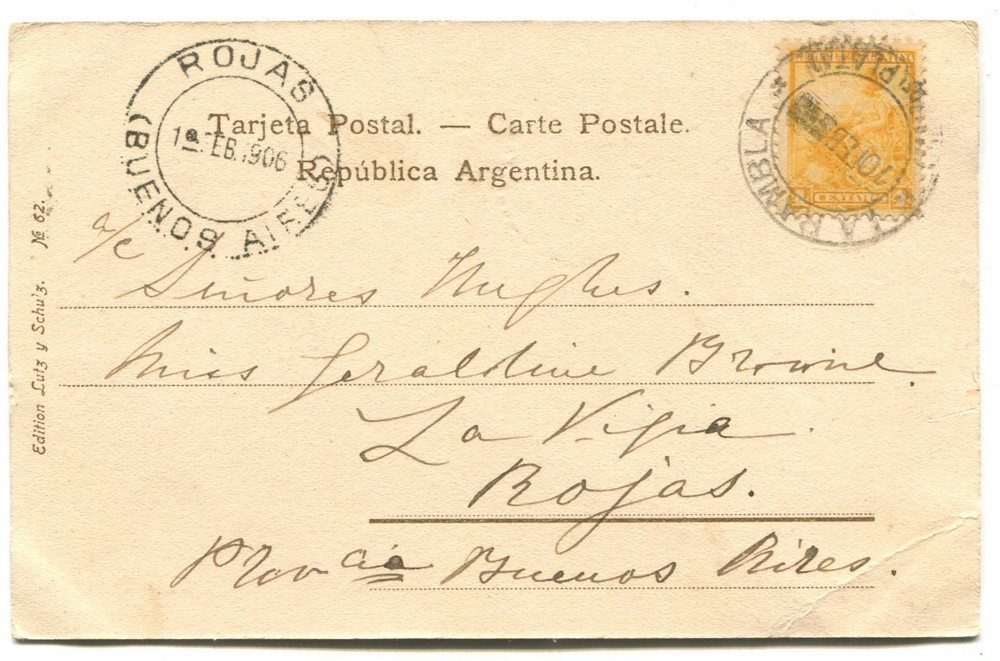 ROJAS
1º FEB. 1906
(BUENOS AIRES)
LA RAMBLA
Tarjeta Postal. — Carte Postale.
República Argentina.
CENTAVO
a/c Señores Hughes.
Miss Geraldine Browne.
La Vigia.
Rojas.
Prov cia Buenos Aires.
Edition Lutz y Schulz. No 62.